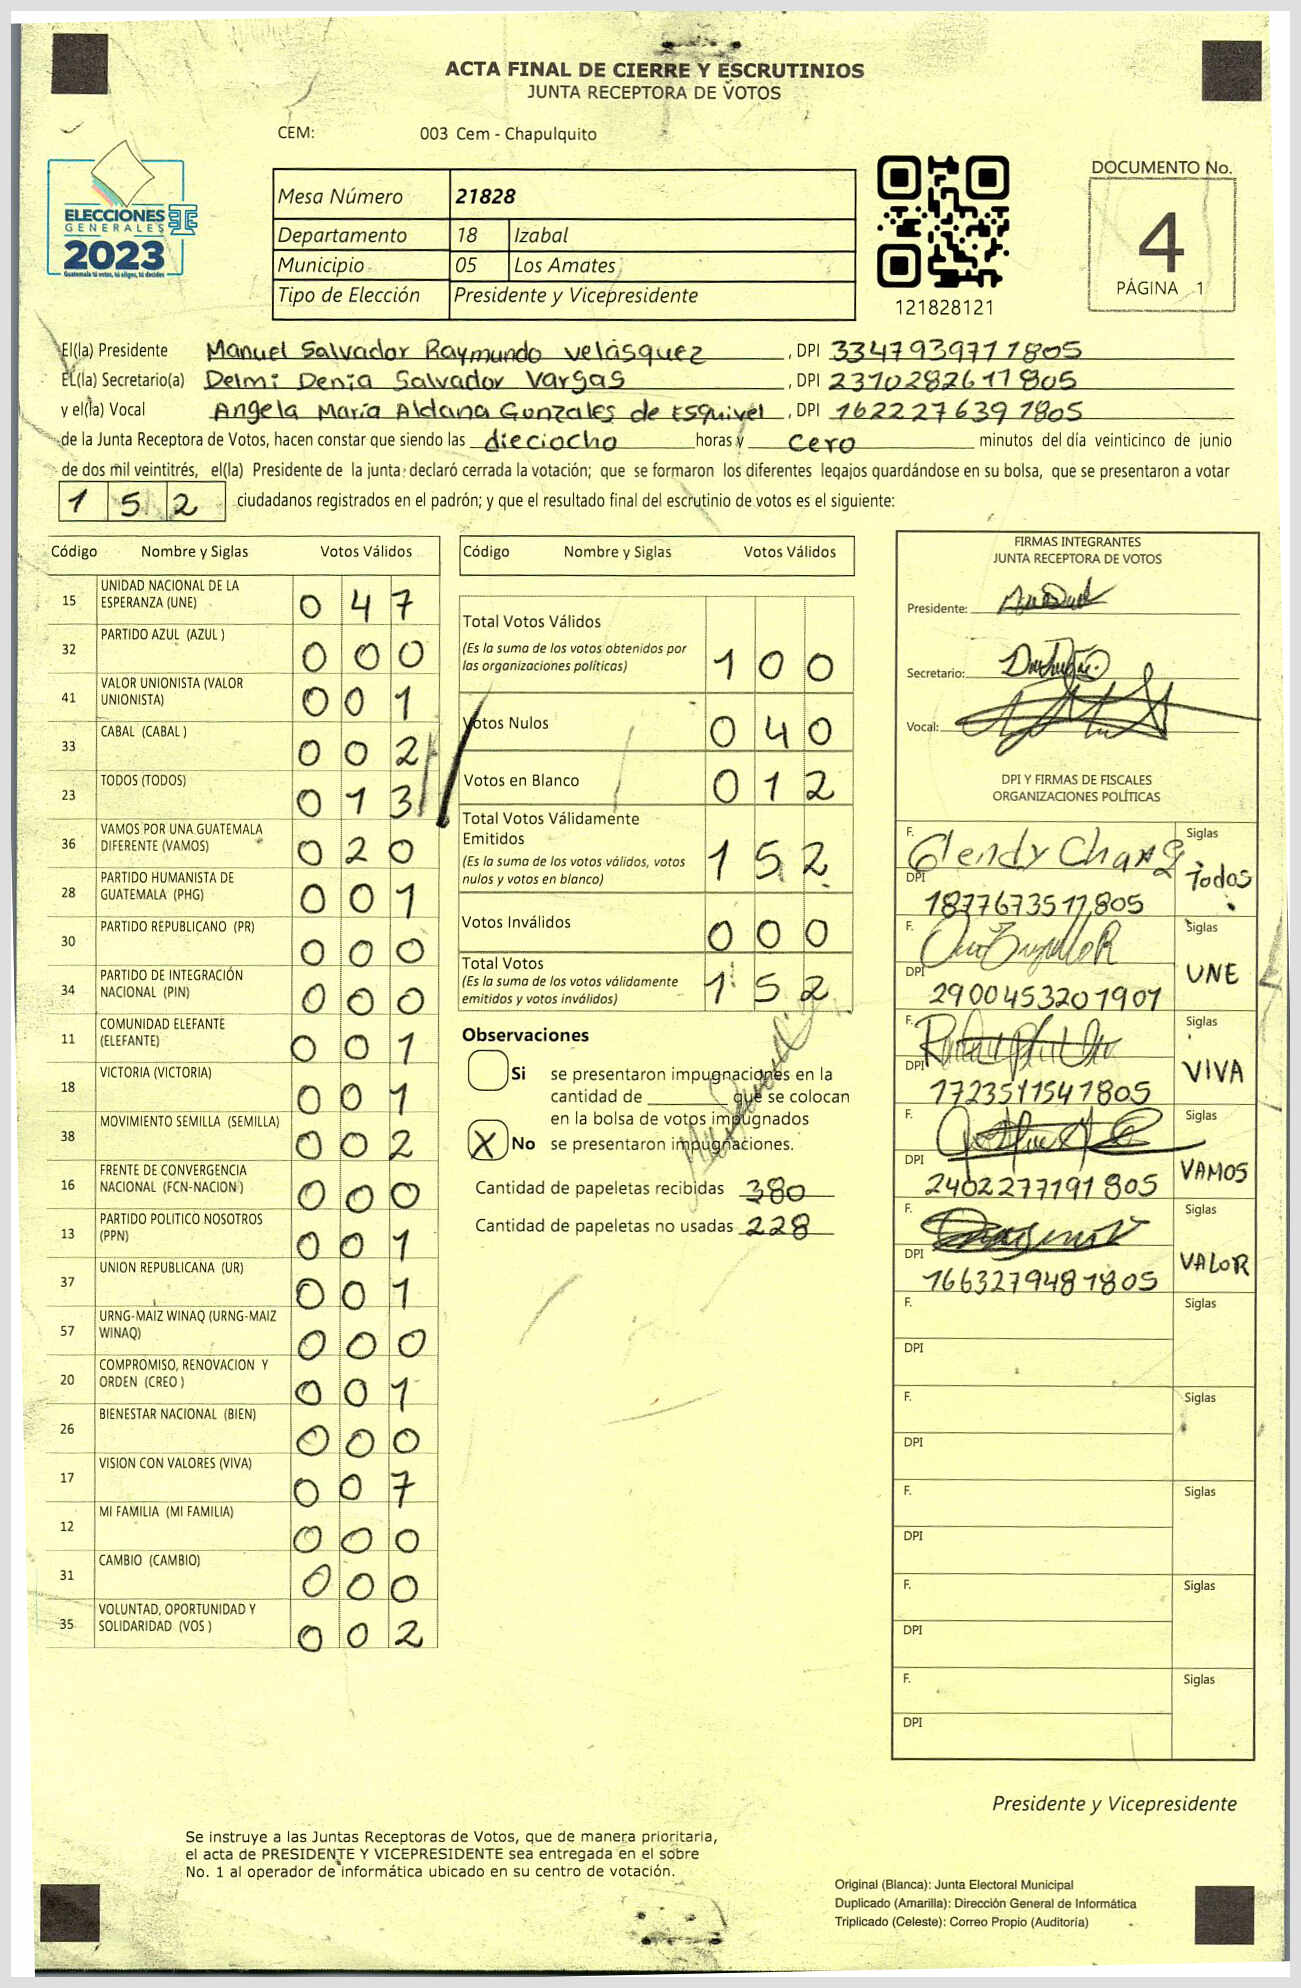 ACTA FINAL DE CIERRE Y ESCRUTINIOS
JUNTA RECEPTORA DE VOTOS
CEM: 003 Cem - Chapulquito
ELECCIONES
GENERALES
2023
Guatemala tú votas, tú eliges, tú decides
Mesa Número 21828
Departamento 18 Izabal
Municipio 05 Los Amates
Tipo de Elección Presidente y Vicepresidente
121828121
DOCUMENTO No.
4
PÁGINA 1
El(la) Presidente Manuel Salvador Raymundo Velásquez, DPI 3347939771805
EL(la) Secretario(a) Delmi Denia Salvador Vargas, DPI 2310282611805
y el(la) Vocal Angela María Aldana Gonzales de Esquivel, DPI 1622276391805
de la Junta Receptora de Votos, hacen constar que siendo las dieciocho horas y cero minutos del día veinticinco de junio
de dos mil veintitrés, el(la) Presidente de la junta declaró cerrada la votación; que se formaron los diferentes legajos guardándose en su bolsa, que se presentaron a votar
1 5 2 ciudadanos registrados en el padrón; y que el resultado final del escrutinio de votos es el siguiente:
Código Nombre y Siglas Votos Válidos
15 UNIDAD NACIONAL DE LA ESPERANZA (UNE) 0 4 7
32 PARTIDO AZUL (AZUL ) 0 0 0
41 VALOR UNIONISTA (VALOR UNIONISTA) 0 0 1
33 CABAL (CABAL ) 0 0 2
23 TODOS (TODOS) 0 1 3
36 VAMOS POR UNA GUATEMALA DIFERENTE (VAMOS) 0 2 0
28 PARTIDO HUMANISTA DE GUATEMALA (PHG) 0 0 1
30 PARTIDO REPUBLICANO (PR) 0 0 0
34 PARTIDO DE INTEGRACIÓN NACIONAL (PIN) 0 0 0
11 COMUNIDAD ELEFANTE (ELEFANTE) 0 0 1
18 VICTORIA (VICTORIA) 0 0 1
38 MOVIMIENTO SEMILLA (SEMILLA) 0 0 2
16 FRENTE DE CONVERGENCIA NACIONAL (FCN-NACION ) 0 0 0
13 PARTIDO POLITICO NOSOTROS (PPN) 0 0 1
37 UNION REPUBLICANA (UR) 0 0 1
57 URNG-MAIZ WINAQ (URNG-MAIZ WINAQ) 0 0 0
20 COMPROMISO, RENOVACION Y ORDEN (CREO ) 0 0 1
26 BIENESTAR NACIONAL (BIEN) 0 0 0
17 VISION CON VALORES (VIVA) 0 0 7
12 MI FAMILIA (MI FAMILIA) 0 0 0
31 CAMBIO (CAMBIO) 0 0 0
35 VOLUNTAD, OPORTUNIDAD Y SOLIDARIDAD (VOS ) 0 0 2
Código Nombre y Siglas Votos Válidos
Total Votos Válidos
(Es la suma de los votos obtenidos por
las organizaciones políticas) 1 0 0
Votos Nulos 0 4 0
Votos en Blanco 0 1 2
Total Votos Válidamente
Emitidos
(Es la suma de los votos válidos, votos
nulos y votos en blanco) 1 5 2
Votos Inválidos 0 0 0
Total Votos
(Es la suma de los votos válidamente
emitidos y votos inválidos) 1 5 2
Observaciones
Si se presentaron impugnaciones en la
cantidad de ________ que se colocan
en la bolsa de votos impugnados
X No se presentaron impugnaciones.
Cantidad de papeletas recibidas 380
Cantidad de papeletas no usadas 228
FIRMAS INTEGRANTES
JUNTA RECEPTORA DE VOTOS
Presidente:
Secretario:
Vocal:
DPI Y FIRMAS DE FISCALES
ORGANIZACIONES POLÍTICAS
F. Glendy Chang Siglas
DPI 1877673511805 Todos
F. Siglas
DPI 2900453201901 UNE
F. Siglas
DPI 1723511541805 VIVA
F. Siglas
DPI 2402277191805 VAMOS
F. Siglas
DPI 1663279481805 VALOR
F. Siglas
DPI
F. Siglas
DPI
F. Siglas
DPI
F. Siglas
DPI
F. Siglas
DPI
Presidente y Vicepresidente
Se instruye a las Juntas Receptoras de Votos, que de manera prioritaria,
el acta de PRESIDENTE Y VICEPRESIDENTE sea entregada en el sobre
No. 1 al operador de informática ubicado en su centro de votación.
Original (Blanca): Junta Electoral Municipal
Duplicado (Amarilla): Dirección General de Informática
Triplicado (Celeste): Correo Propio (Auditoría)